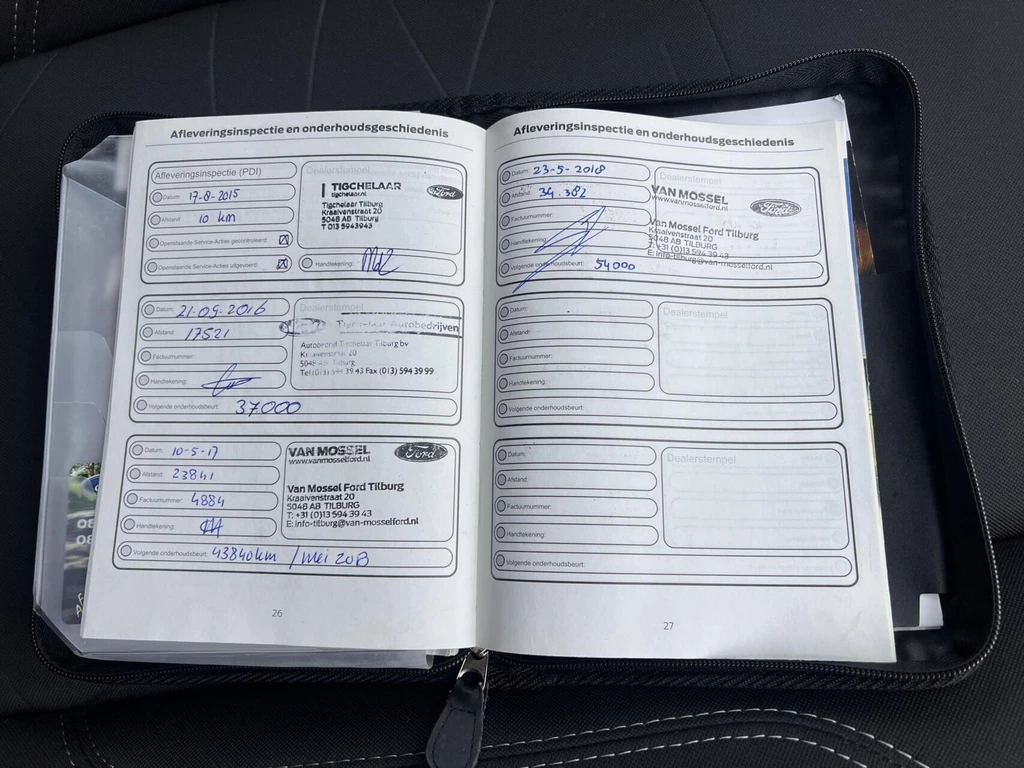 Afleveringsinspectie en onderhoudsgeschiedenis
Afleveringsinspectie (PDI)
Datum: 17-8-2015
Afstand: 10 km
Openstaande Service-Acties gecontroleerd:
Openstaande Service-Acties uitgevoerd:
Dealerstempel
TIGCHELAAR
tigchelaar.nl
Ford
Tigchelaar Tilburg
Kraaivenstraat 20
5048 AB Tilburg
T 013 5943943
Handtekening:
Datum: 21-09-2016
Afstand: 17521
Factuurnummer:
Handtekening:
Volgende onderhoudsbeurt: 37.000
Dealerstempel
Tigchelaar Autobedrijven
Autobedrijf Tigchelaar Tilburg bv
Kraaivenstraat 20
5048 AB Tilburg
Tel (013) 594 39 43 Fax (013) 594 39 99
Datum: 10-5-17
Afstand: 23841
Factuurnummer: 4884
Handtekening:
Volgende onderhoudsbeurt: 43840km / mei 2018
VAN MOSSEL
www.vanmosselford.nl
Ford
Van Mossel Ford Tilburg
Kraaivenstraat 20
5048 AB TILBURG
T: +31 (0)13 594 39 43
E: info-tilburg@van-mosselford.nl
26
Afleveringsinspectie en onderhoudsgeschiedenis
Datum: 23-5-2018
Afstand: 34.382
Factuurnummer:
Handtekening:
Volgende onderhoudsbeurt: 54000
Dealerstempel
VAN MOSSEL
www.vanmosselford.nl
Ford
Van Mossel Ford Tilburg
Kraaivenstraat 20
5048 AB TILBURG
T: +31 (0)13 594 39 43
E: info-tilburg@van-mosselford.nl
Datum:
Afstand:
Factuurnummer:
Handtekening:
Volgende onderhoudsbeurt:
Dealerstempel
Datum:
Afstand:
Factuurnummer:
Handtekening:
Volgende onderhoudsbeurt:
Dealerstempel
27